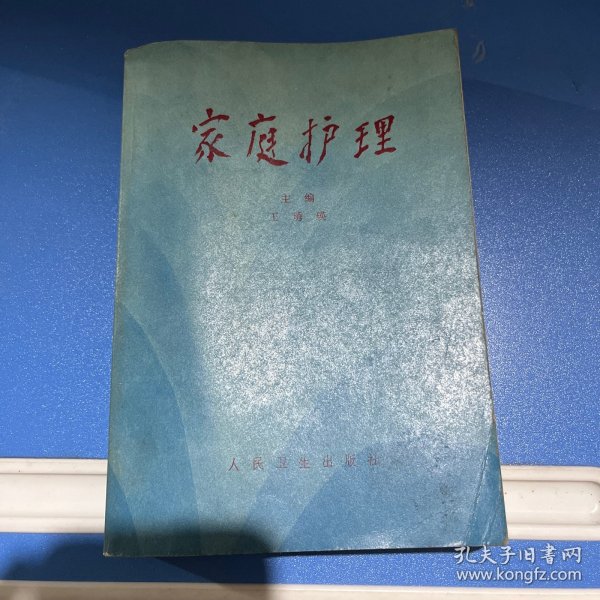 家庭护理
主编
王
人民卫生出版社
孔夫子旧书网
www.kongfz.com